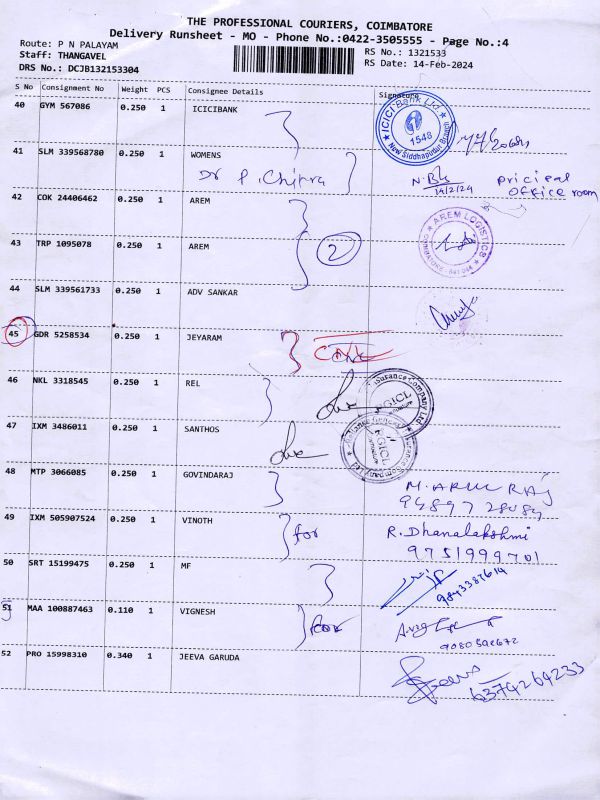 THE PROFESSIONAL COURIERS, COIMBATORE
Delivery Runsheet - MO - Phone No.:0422-3505555 - Page No.:4
Route: P N PALAYAM
Staff: THANGAVEL
DRS No.: DCJB132153304
RS No.: 1321533
RS Date: 14-Feb-2024
S No Consignment No Weight PCS Consignee Details Signature
40 GYM 567086 0.250 1 ICICIBANK
ICICI Bank Ltd. 1548 New Siddhapudur Branch
41 SLM 339568780 0.250 1 WOMENS
Dr P. Chitra
14/2/24
office room
42 COK 24406462 0.250 1 AREM
43 TRP 1095078 0.250 1 AREM
2
AREM LOGISTICS
44 SLM 339561733 0.250 1 ADV SANKAR
45 GDR 5258534 0.250 1 JEYARAM
46 NKL 3318545 0.250 1 REL
47 IXM 3486011 0.250 1 SANTHOS
48 MTP 3066085 0.250 1 GOVINDARAJ
M. ARUL RAJ
49 IXM 505907524 0.250 1 VINOTH
for
R. Dhanalakshmi
9751999701
50 SRT 15199475 0.250 1 MF
9843387614
51 MAA 100887463 0.110 1 VIGNESH
for
9080592672
52 PRO 15998310 0.340 1 JEEVA GARUDA
6374264233